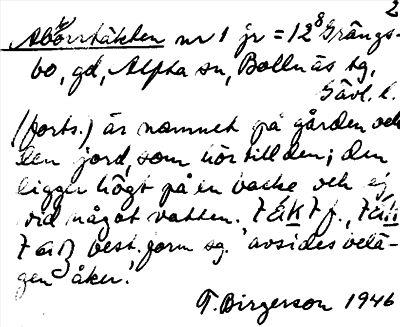 2
Aborrtäkten nr 1 jr = 12⁸ Grängs-
bo, gd, Alpha sn, Bollnäs tg,
Gävl. l.
(forts.) är namnet på gården och
den jord, som hör till den; den
ligger högt på en backe och ej
vid något vatten. 
best. form sg. 'avsides belä-
gen åker.'
T. Birgerson 1946